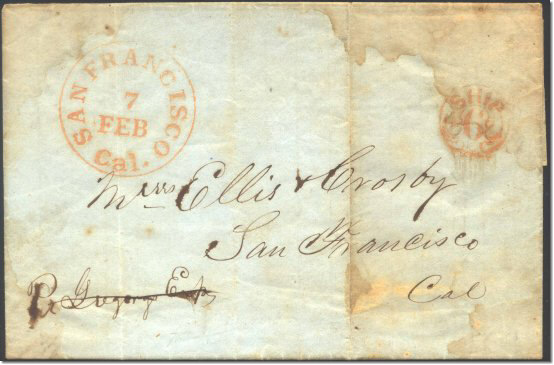 SAN FRANCISCO
7
FEB
Cal.
SHIP
6
Messrs Ellis & Crosby
San Francisco
Cal
Pr Gregorys Exp